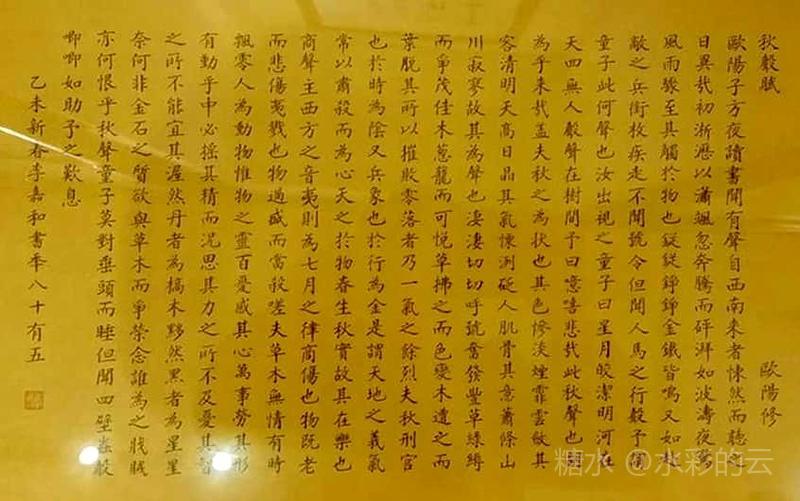 秋聲賦 歐陽修
歐陽子方夜讀書聞有聲自西南來者悚然而聽之
曰異哉初淅瀝以蕭颯忽奔騰而砰湃如波濤夜驚
風雨驟至其觸於物也鏦鏦錚錚金鐵皆鳴又如赴
敵之兵銜枚疾走不聞號令但聞人馬之行聲予謂
童子此何聲也汝出視之童子曰星月皎潔明河在
天四無人聲聲在樹間予曰噫嘻悲哉此秋聲也
為乎來哉蓋夫秋之為狀也其色慘淡煙霏雲斂其
容清明天高日晶其氣慄冽砭人肌骨其意蕭條山
川寂寥故其為聲也淒淒切切呼號奮發豐草綠縟
而爭茂佳木蔥籠而可悅草拂之而色變木遭之而
葉脫其所以摧敗零落者乃一氣之餘烈夫秋刑官
也於時為陰又兵象也於行為金是謂天地之義氣
常以肅殺而為心天之於物春生秋實故其在樂也
商聲主西方之音夷則為七月之律商傷也物既老
而悲傷夷戮也物過盛而當殺嗟夫草木無情有時
飄零人為動物惟物之靈百憂感其心萬事勞其形
有動乎中必搖其精而況思其力之所不及憂其智
之所不能宜其渥然丹者為槁木黟然黑者為星星
奈何非金石之質欲與草木而爭榮念誰為之戕賊
亦何恨乎秋聲童子莫對垂頭而睡但聞四壁蟲聲
唧唧如助予之歎息
乙未新春李嘉和書年八十有五
糖水 @水彩的云